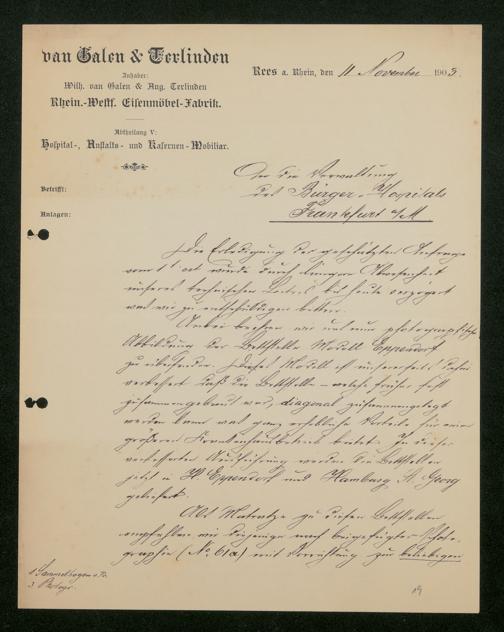 van Galen & Terlinden
Inhaber:
Wilh. van Galen & Aug. Terlinden
Rhein.-Westf. Eisenmöbel-Fabrik.
Abtheilung V:
Hospital-, Anstalts- und Kasernen-Mobiliar.
Rees a. Rhein, den 11 November 1903.
Betrifft:
Anlagen:
An die Verwaltung
des Bürger-Hospitals
Frankfurt a/M
Die Erledigung der geschätzten Anfrage
vom wurde durch längere Abwesenheit
unseres technischen Leiters bis heute verzögert
was wir zu entschuldigen bitten.
Anbei beehren wir uns eine photographische
Abbildung der Bettstelle Modell Eppendorf
zu übersenden. Dieses Modell ist unsererseits dahin
verbessert daß die Bettstelle - welche früher fest
zusammengebaut war, diagonal zusammengelegt
werden kann was ganz erhebliche Vorteile für einen
größeren Krankenhausbetrieb bietet. In dieser
verbesserten Ausführung werden die Bettstellen
jetzt n. H. Eppendorf und Hamburg St. Georg
geliefert.
Als Matratze zu diesen Bettstellen
empfehlen wir diejenige nach beigefügter Photo-
graphie (No 61a) mit Vorrichtung zu beliebigen
1 Sammelbogen
3 Photogr.
19